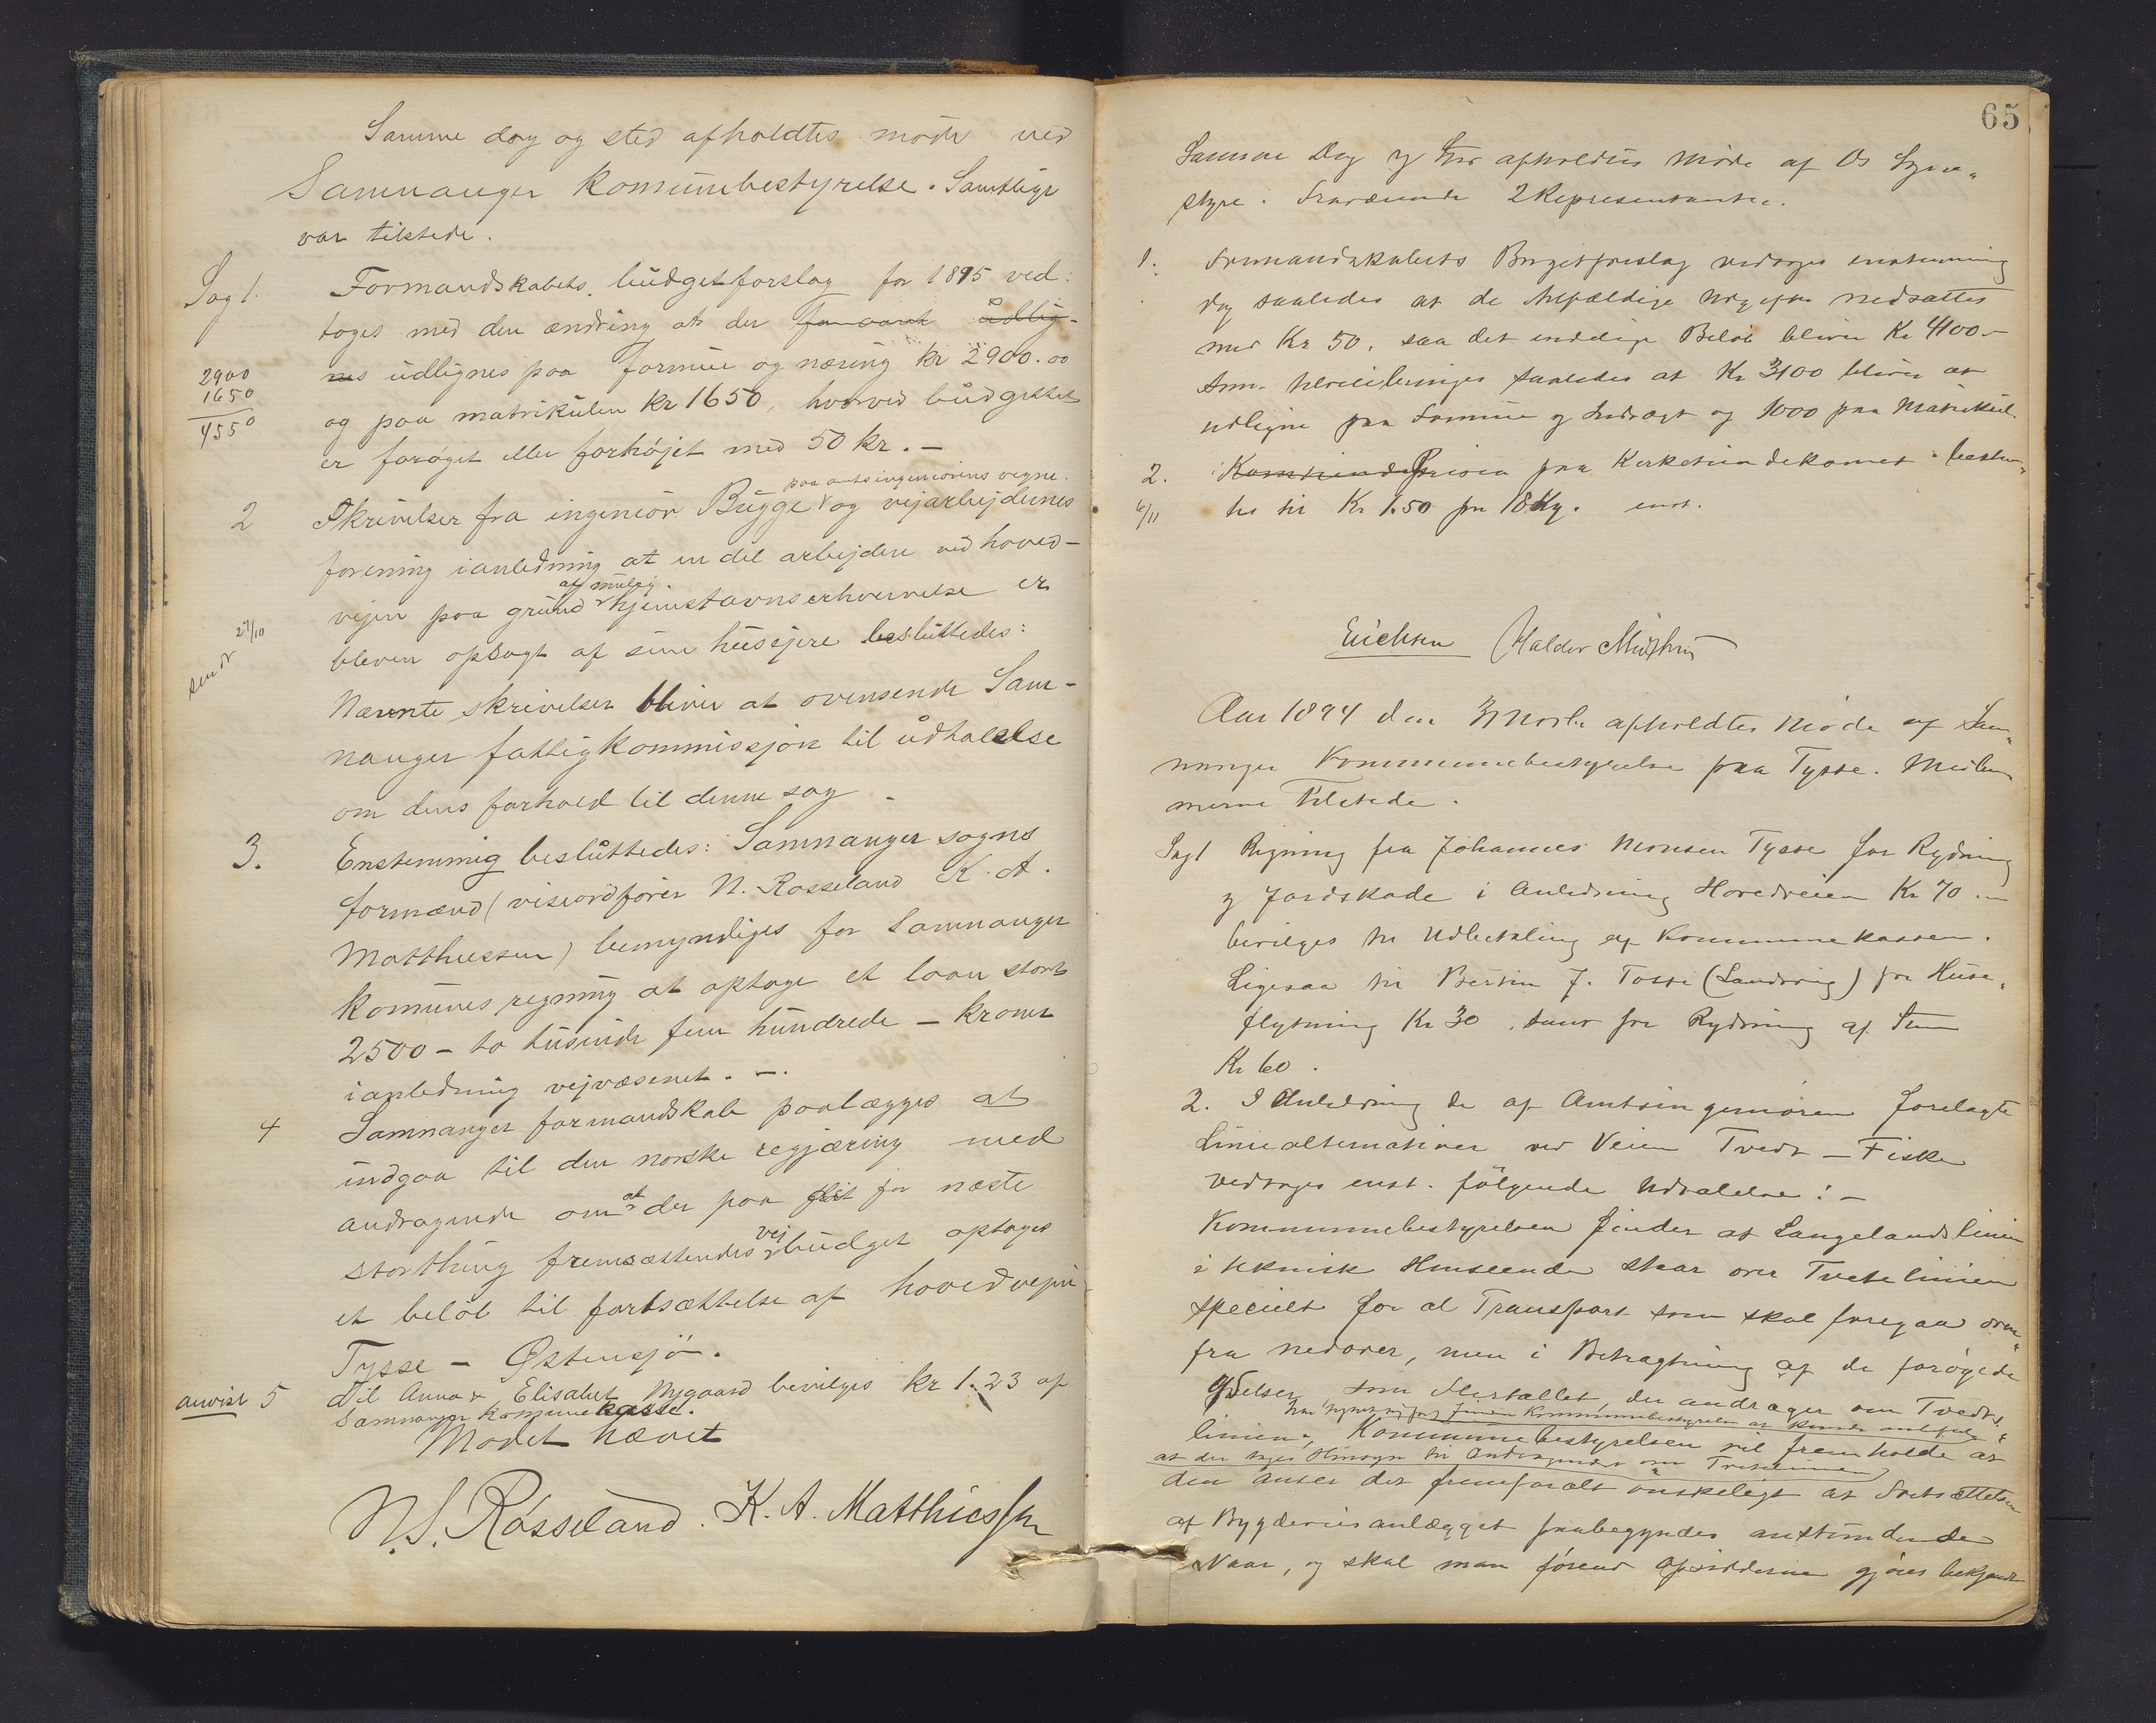 Samme dag og sted afholdtes møde ved
Samnanger komünebestyrelse. Samtlige
var tilstede.
Sag 1. Formandskabets büdgetforslag for 1895 ved-
toges med den ændring at der üdlig-
nes üdlignes paa formüe og næring kr 2900.00
2900
1650
4550
og paa matrikülen kr 1650, hvorved büdgettet
er forøget eller forhøjet med 50 kr. –
paa amtsingeniørens vegne.
2 Skrivelser fra ingeniør Bügge og vejarbejdernes
forening i anledning at en del arbejdere ved hoved-
af mülig
vejen paa gründ hjemstavnserhvervelse er
sendt 27/10
bleven opsagt af sine hüsejere beslüttedes:
Nævnte skrivelser bliver at oversende Sam-
nanger fattigkommissjon til üdtalelse
om dens forhold til denne sag –
3. Enstemmig beslüttedes: Samnanger sogns
formænd (viseordfører N. Røsseland K. A.
Matthiessen) bemyndiges for Samnanger
komünes regning at optage et laan stort
2500 – to tüsinde fem hündrede – kroner
i anledning vejvæsenet. –.
4 Samnanger formandskab paalægges at
indgaa til den norske regjæring med
andragende om at der paa det for næste
storthing fremsættendes vejbüdget optages
et beløb til fortsættelse af hovedvejen
Tysse – Østensjø.
anvist 5 Til Anna & Elisabet Nygaard bevilges kr 1.23 af
Samnanger komünekasse.
Mødet hævet
N. S. Røsseland. K. A. Matthiessen
65
Samme Dag og Sted afholdtes Møde af Os Sogne-
styre. Fraværende 2 Representanter.
1. Formandskabets Budgetforslag vedtoges enstemmig
dog saaledes at de tilfældige Udgifter nedsættes
med Kr 50, saa det endelige Beløb bliver Kr 4100 –
saaledes at Kr 3100 bliver at
udligne paa Formue og Indtægt og 1000 paa Matrikül.
2. Prisen paa Kirketiendekornet bestem-
6/11 tes til Kr 1.50 pr 18 Kg. enst.
Erichsen Haldor
Aar 1894 den afholdtes Møde af Sam-
nanger Kommunebestyrelse paa Tysse. Medlem-
merne Tilstede.
Sag 1 Regning fra Johannes Monsen Tysse for Rydning
og Jordskade i Anledning Hovedveien Kr 70 –
bevilges til Udbetaling af Kommunekassen.
Ligesaa til J. Tysse (Landvig) for Huse-
flytning Kr 30, samt for Rydning af
Kr 60.
2. I Anledning de af Amtsingeniøren forelagte
Liniealternativer ved Veien Tvedt – Fiske
vedtoges enst. følgende Udtalelse: –
Kommunebestyrelsen finder at Langelandslinien
i teknisk Henseende staar over Tvetelinien
specielt for al Transport som skal foregaa oven-
fra nedover, men i Betragtning af de forøgede
som Flertallet, der andrager om Tvedte-
finder Kommunebestyrelsen at kunde anbefale
linien, Kommunebestyrelsen vil fremholde at
at der tages Hensyn til Andragendet om Tvetelinien
den anser det fremforalt ønskeligt at Fortsættelsen
af Bygdeveisanlægget paabegyndes anstundende
Vaar, og skal man forend Opsidderne gjøres bekjendt